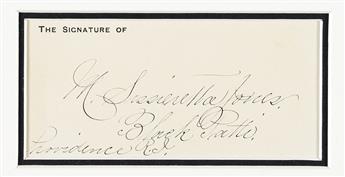 THE SIGNATURE OF
M. Sissieretta Jones.
Black Patti.
Providence R.I.